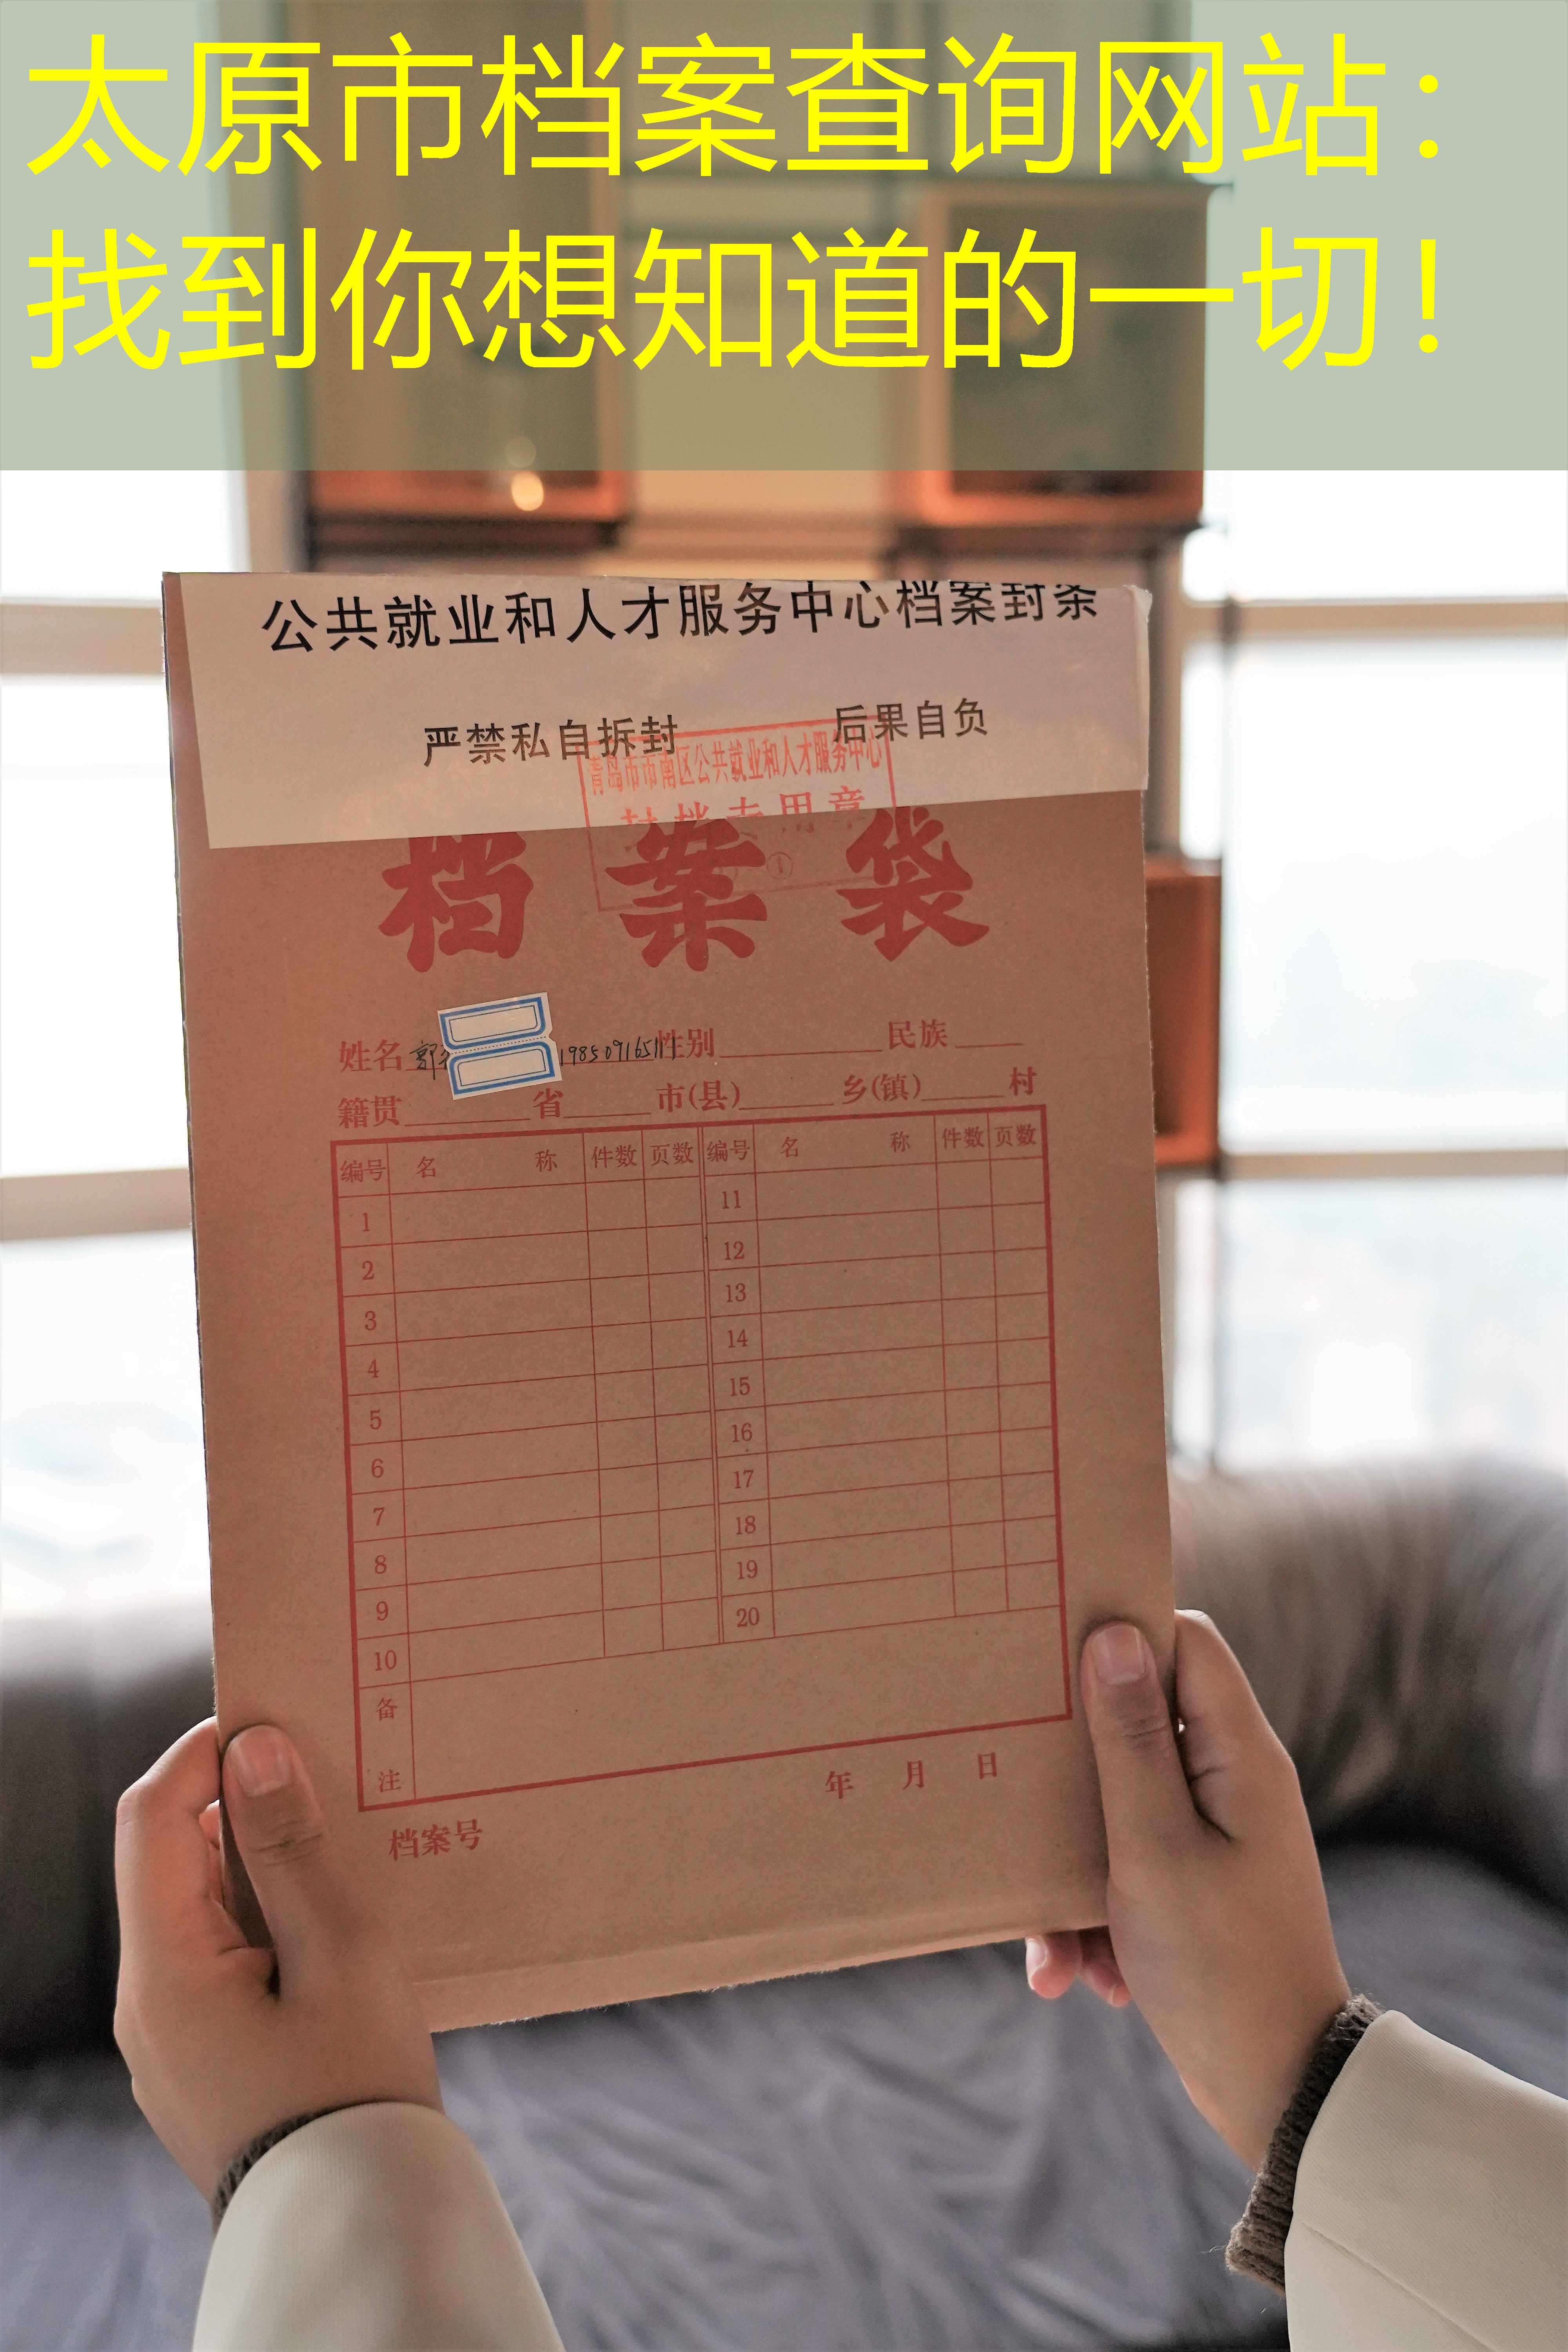 太原市档案查询网站：
找到你想知道的一切！
公共就业和人才服务中心档案封条
严禁私自拆封 后果自负
青岛市市南区公共就业和人才服务中心
封档专用章
档案袋
姓名 郭 19850916511 性别 民族
籍贯 省 市(县) 乡(镇) 村
编号 名称 件数 页数 编号 名称 件数 页数
1 11
2 12
3 13
4 14
5 15
6 16
7 17
8 18
9 19
10 20
备注
年 月 日
档案号